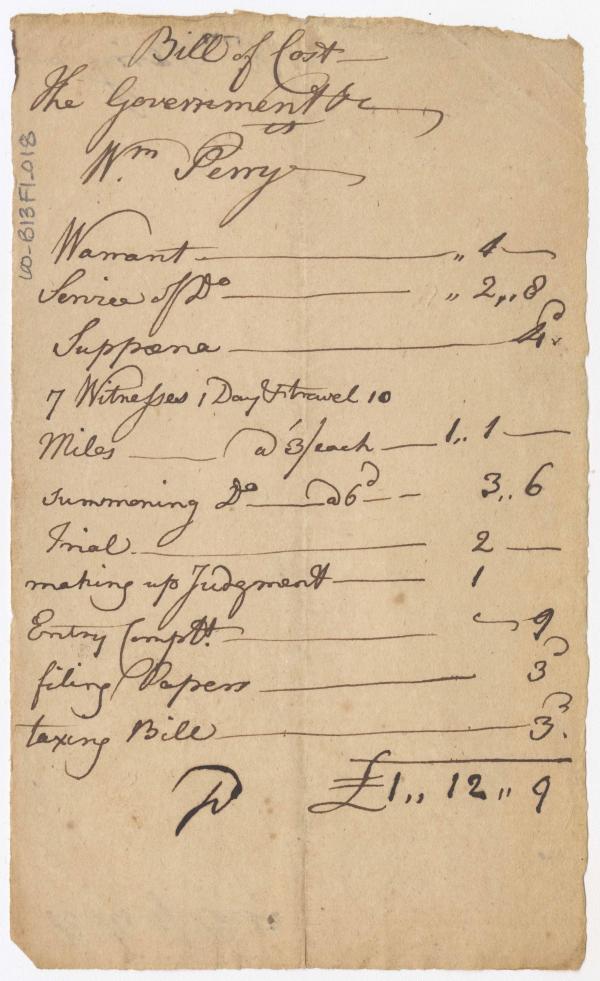 Bill of Cost
The Government &c
vs
Wm Perry
Warrant „ 4
Service of Do „ 2„8
Suppœna 4d
7 Witnesses 1 Day & travel 10
Miles a 3/ each 1„1
summoning Do a 6d 3„6
Trial 2
making up Judgment 1
Entry Complt. 9
filing Papers 3d
taxing Bill 3d.
£1„12„9
WO-B13F1-018